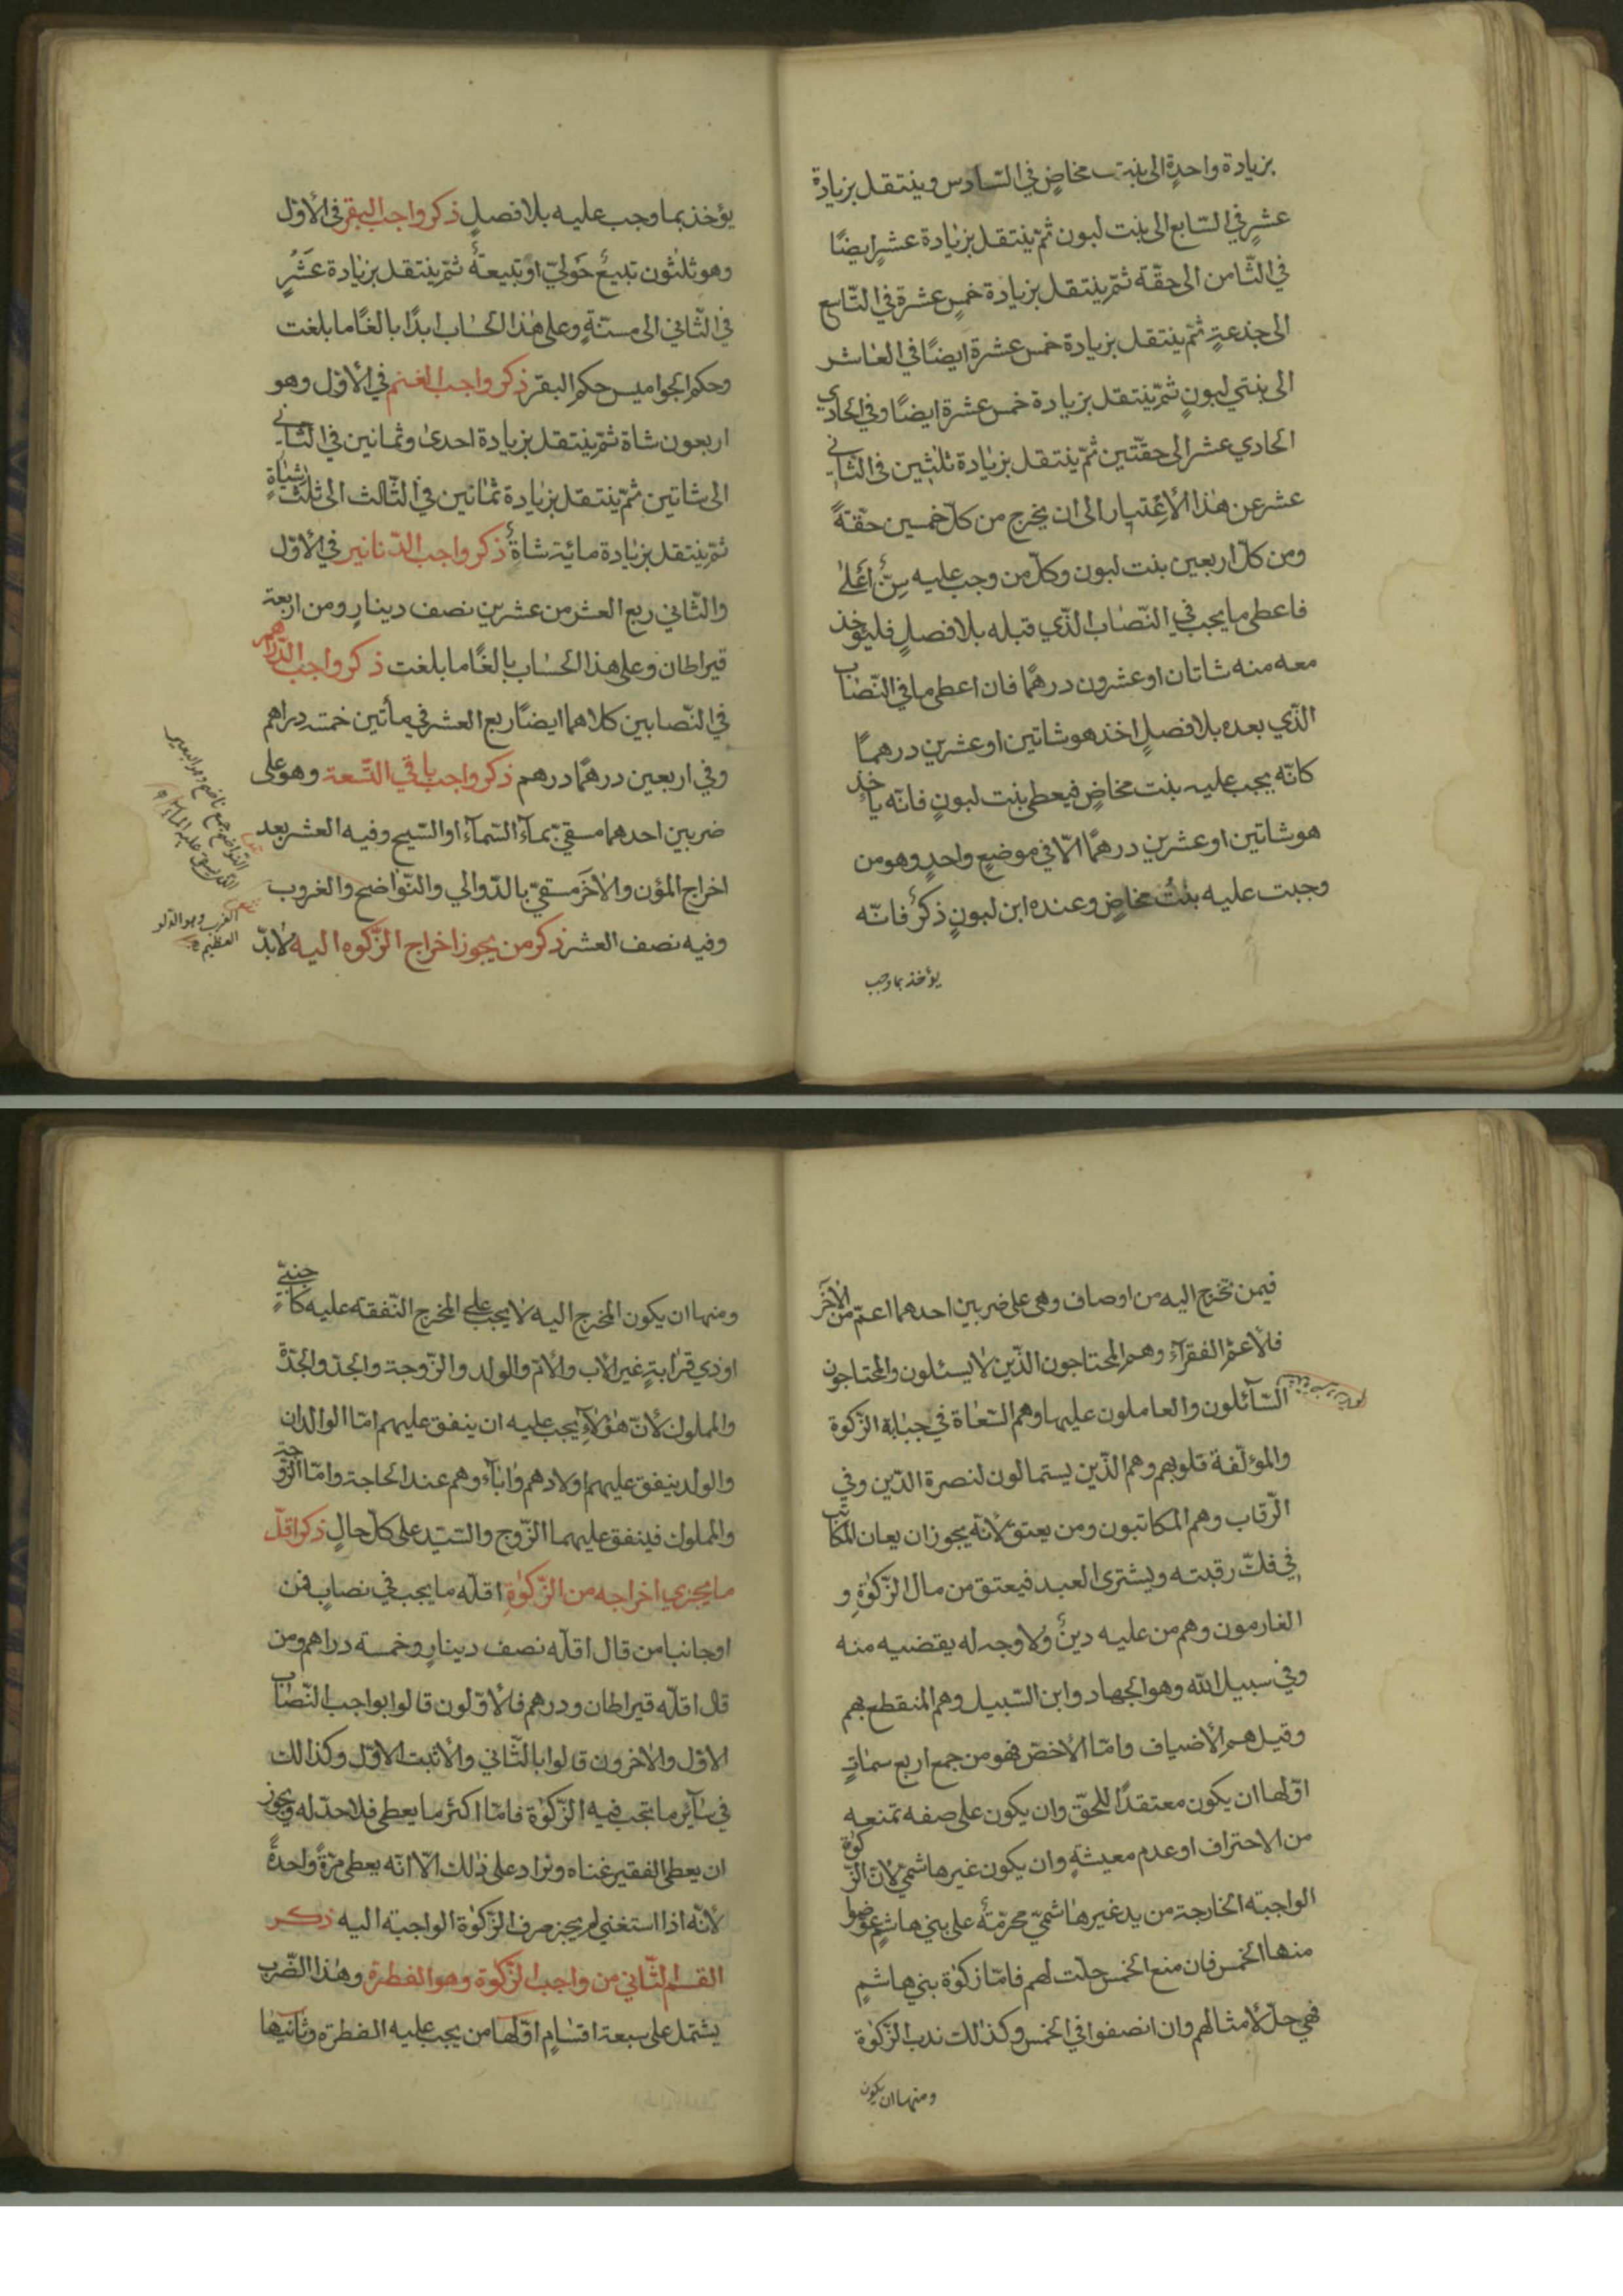 بزيادة واحدةٍ الى بنت مخاضٍ في السّادس وينتقل بزيادة
عشرٍ في السّابع الى بنت لبون ثمّ ينتقل بزيادة عشرٍ ايضًا
في الثّامن الى حقّة ثمّ ينتقل بزيادة خمس عشرة في التّاسع
الى جذعةٍ ثمّ ينتقل بزيادة خمس عشرة ايضًا في العاشر
الى بنتي لبونٍ ثمّ ينتقل بزيادة خمس عشرة ايضًا وفي الحادي
الحادي عشر الى حقّتين ثمّ ينتقل بزيادة ثلثين في الثّاني
عشر عن هذا الأعتبار الى ان يخرج من كلّ خمسين حقّةً
ومن كلّ اربعين بنت لبون وكلّ من وجب عليه سنٌّ اعلى
فاعطى ما يجب في النّصاب الّذي قبله بلا فصلٍ فليؤخذ
معه منه شاتان او عشرون درهمًا فان اعطى ما في النّصاب
الّذي بعده بلا فصلٍ اخذ هو شاتين او عشرين درهمًا
كانّه يجب عليه بنت مخاضٍ فيعطى بنت لبونٍ فانّه ياخذ
هو شاتين او عشرين درهمًا الّا في موضعٍ واحدٍ وهو من
وجبت عليه بنتُ مخاضٍ وعنده ابن لبونٍ ذكرٌ فانّه
يؤخذ بما وجب
يؤخذ بما وجب عليه بلا فصلٍ ذكر واجب البقر في الأوّل
وهو ثلثون تبيعٌ حَوليّ او تبيعةٌ ثمّ ينتقل بزيادة عَشْرٍ
في الثّاني الى مسنّةٍ وعلى هذا الحساب ابدًا بالغًا ما بلغت
وحكم الجواميس حكم البقر ذكر واجب الغنم في الأوّل وهو
اربعون شاة ثمّ ينتقل بزيادة احدى وثمانين في الثّاني
الى شاتين ثمّ ينتقل بزيادة ثمانين في الثّالث الى ثلث شياةٍ
ثمّ ينتقل بزيادة مائة شاةٌ ذكر واجب الدّنانير في الأوّل
والثّاني ربع العشر من عشرين نصف دينارٍ ومن اربعة
قيراطان وعلى هذا الحساب بالغًا ما بلغت ذكر واجب الدّراهم
في النّصابين كلاهما ايضًا ربع العشر في مأتين خمسة دراهم
وفي اربعين درهمًا درهم ذكر واجب باقي التّسعة وهو على
ضربين احدهما مسقيّ بماء السّماء او السّيح وفيه العشر بعد
اخراج المؤن والأخَر مسقيّ بالدّوالي والنّواضح والغروب
وفيه نصف العشر ذكر من يجوز اخراج الزّكوة اليه لابدّ
النّواضح جمع ناضح وهو البعير
الغرب وهو الدّلو
العظيم
فيمن تخرج اليه من اوصاف وهى على ضربين احدهما اعمّ من الأخَر
فلأعمّ الفقرآء وهم المحتاجون الّذين لا يسئلون والمحتاجون
السّآئلون والعاملون عليها وهم السّعاة في جباية الزّكوة
والمؤلّفة قلوبهم وهم الّذين يستمالون لنصرة الدّين وفي
الرّقاب وهم المكاتبون ومن يعتق لأنّه يجوز ان يعان المكاتب
في فكّ رقبته ويشترى العبد فيعتق من مال الزّكوةِ و
الغارمون وهم من عليه دينٌ ولا وجه له يقضيه منه
وفي سبيل الله وهو الجهاد وابن السّبيل وهم المنقطع بهم
وقيل هم الأضياف وامّا الأخصّ فهو من جمع اربع سماتٍ
اوّلها ان يكون معتقدًا للحقّ وان يكون على صفه تمنعه
من الاحتراف او عدم معيشةٍ وان يكون غير هاشميّ لأنّ الزّكوة
الواجبة الخارجة من يد غير هاشميّ محرّمةٌ على بني هاشمٍ عوّضوا
منها الخمس فان منع الخمس حلّت لهم فامّا زكوة بني هاشمٍ
فهي حلّ لأمثالهم وان انصفوا في الخمس وكذلك ندب الزّكوة
ومنها ان يكون
ومنها ان يكون المخرج اليه لا يجب على المخرج النّفقة عليه كاجنبيّ
او ذي قرابةٍ غير الأب والأمّ والولد والزّوجة والجدّ والجدّة
والمملوك لأنّ هؤلآءِ يجب عليه ان ينفق عليهم امّا الوالدان
والولد ينفق عليهم اولادهم وابآءوهم عند الحاجة وامّا الزّوجة
والمملوك فينفق عليهما الزّوج والسّيّد على كلّ حالٍ ذكر اقلّ
ما يجزي اخراجه من الزّكوةِ اقلّه ما يجب في نصابٍ فمن
اوجانبا من قال اقلّه نصف دينارٍ وخمسة دراهم ومن
قال اقلّه قيراطان ودرهم فلأوّلون قالوا بواجب النّصاب
الاوّل والأخرون قالوا بالثّاني والأثبت الاوّل وكذالك
في سآئر ما تجب فيه الزّكوة فامّا اكثر ما يعطى فلا حدّ له ويجوز
ان يعطى الفقير غناه ونراد على ذلك الّا انّه يعطى مرّةً واحدةً
لأنّه اذا استغنى لم يجز صرف الزّكوة الواجبة اليه ذكر
القسم الثّاني من واجب الزّكوة وهو الفطرة وهذا الضّرب
يشتمل على سبعة اقسامٍ اوّلها من يجب عليه الفطرة وثانيها